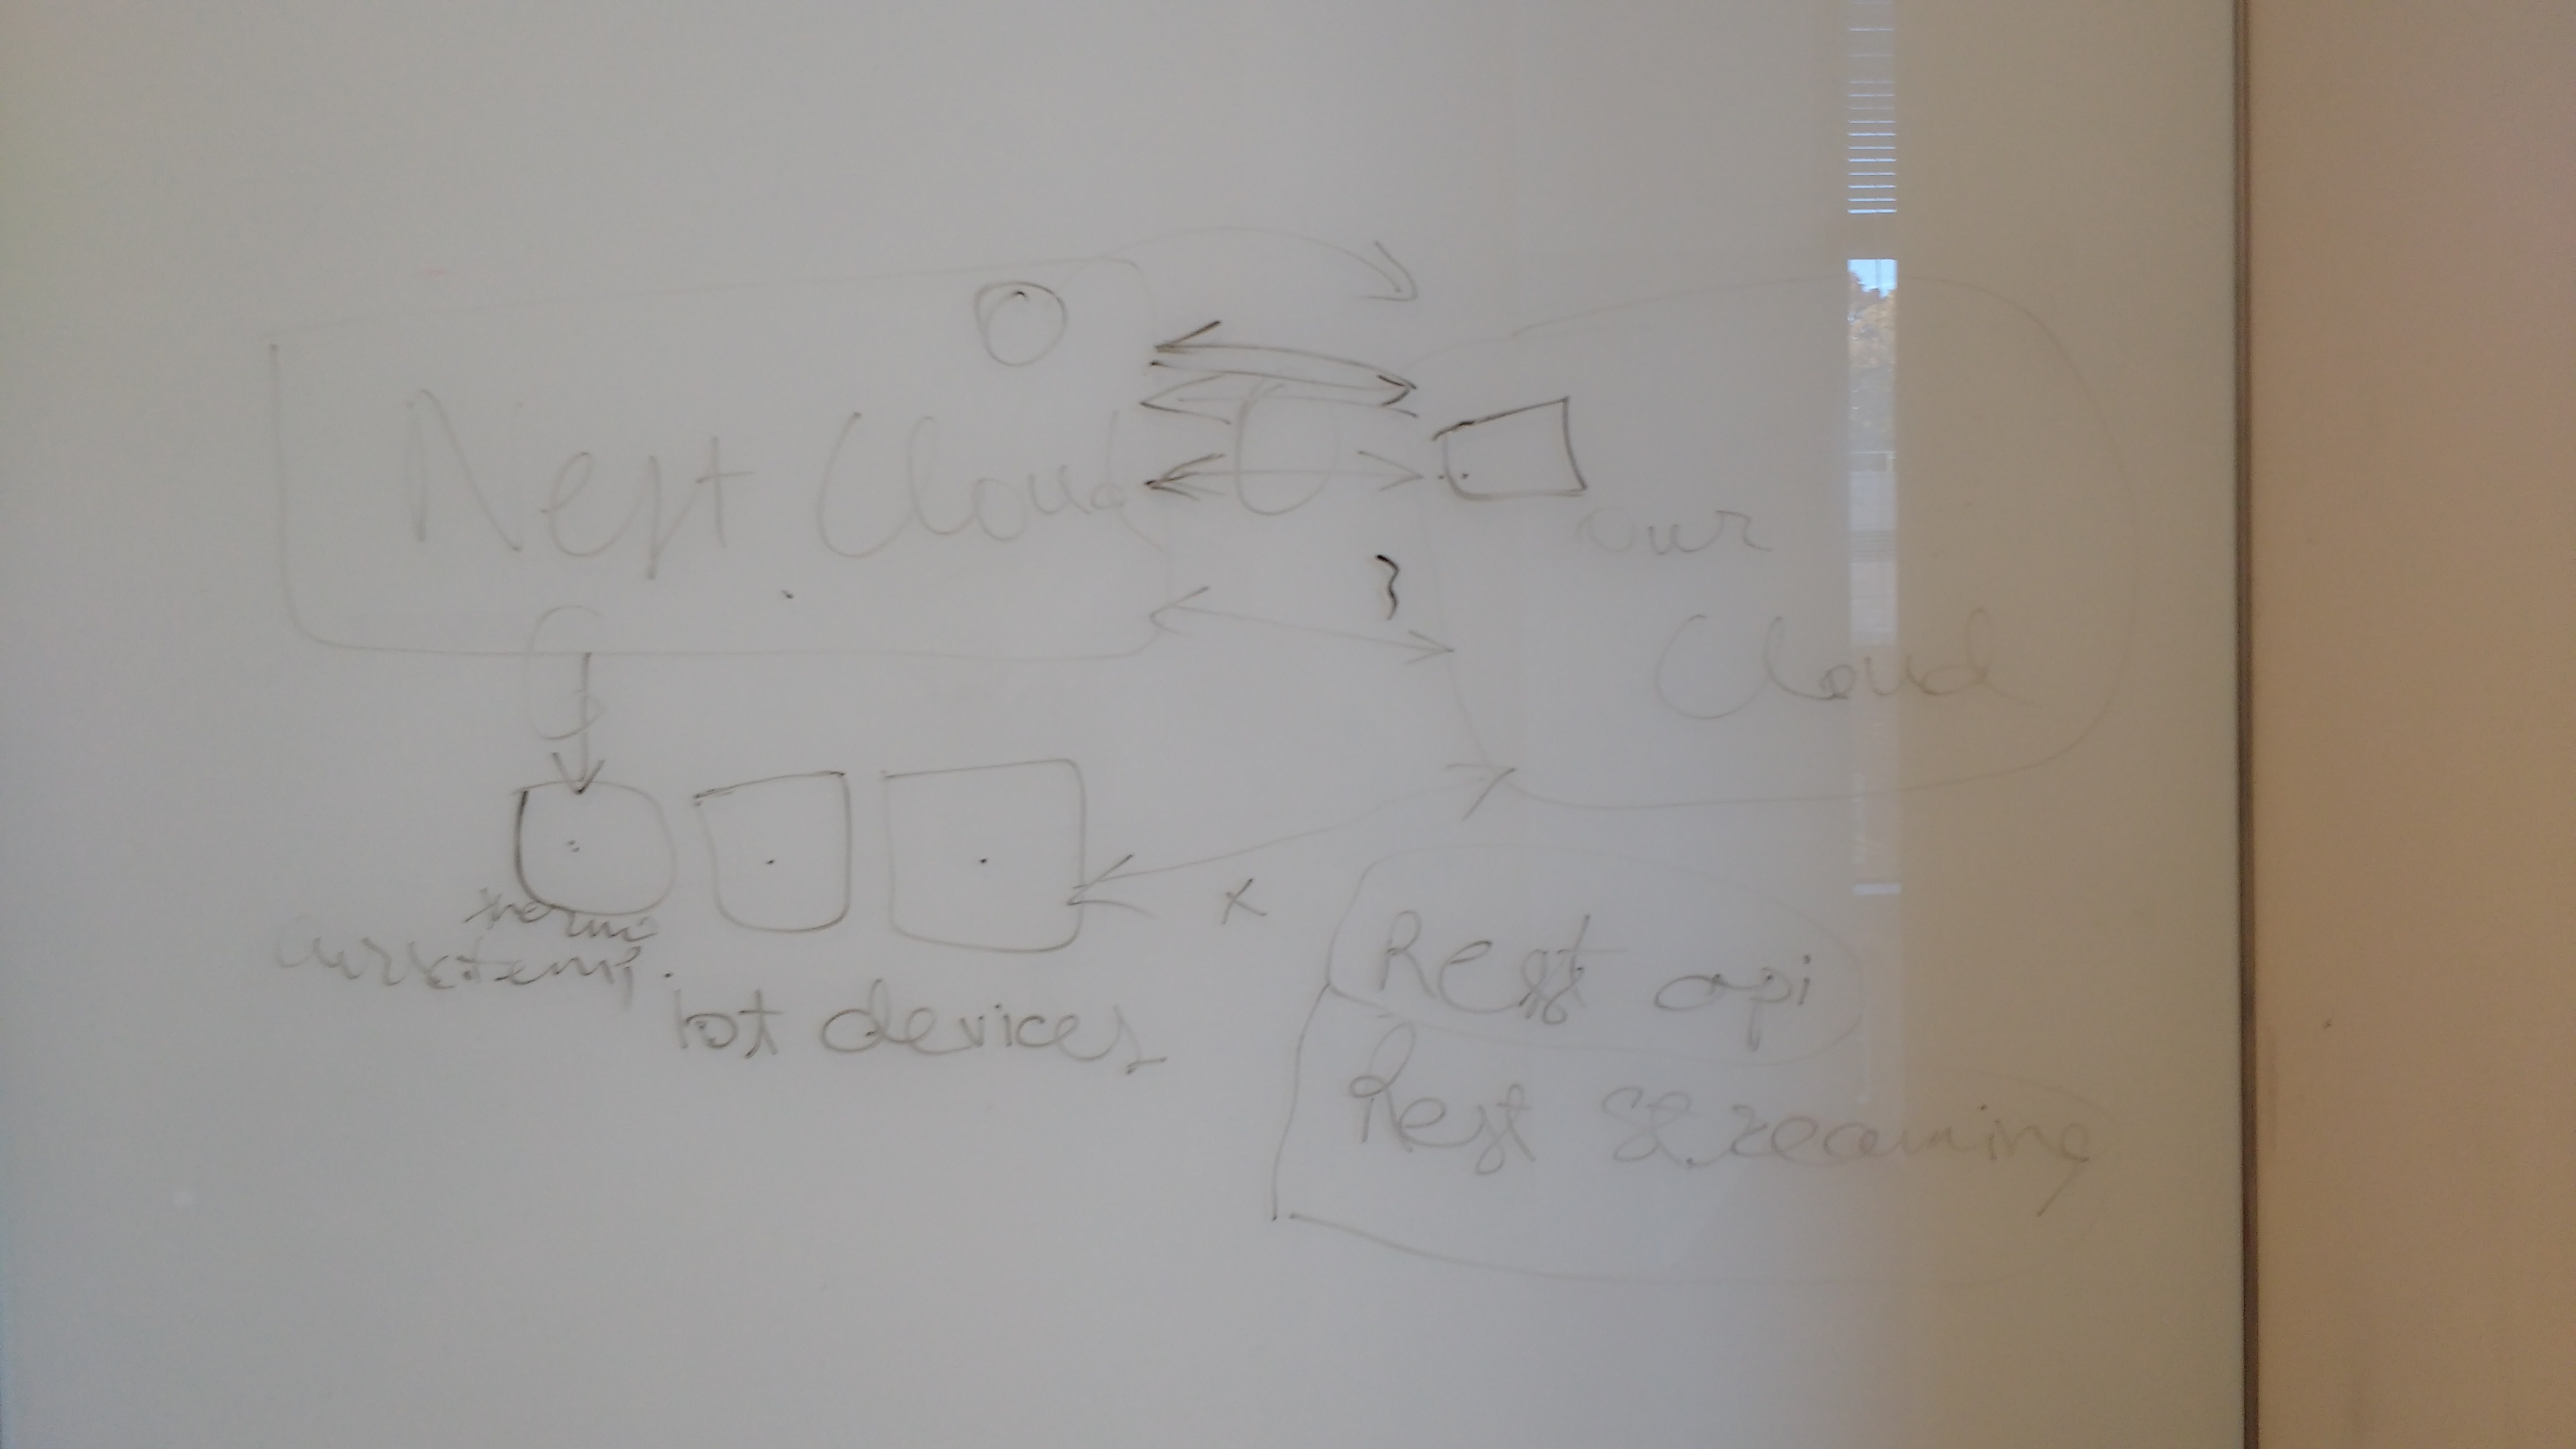 Nest Cloud
our
Cloud
therm
curr temp.
Iot devices
x
Rest api
Rest Streaming